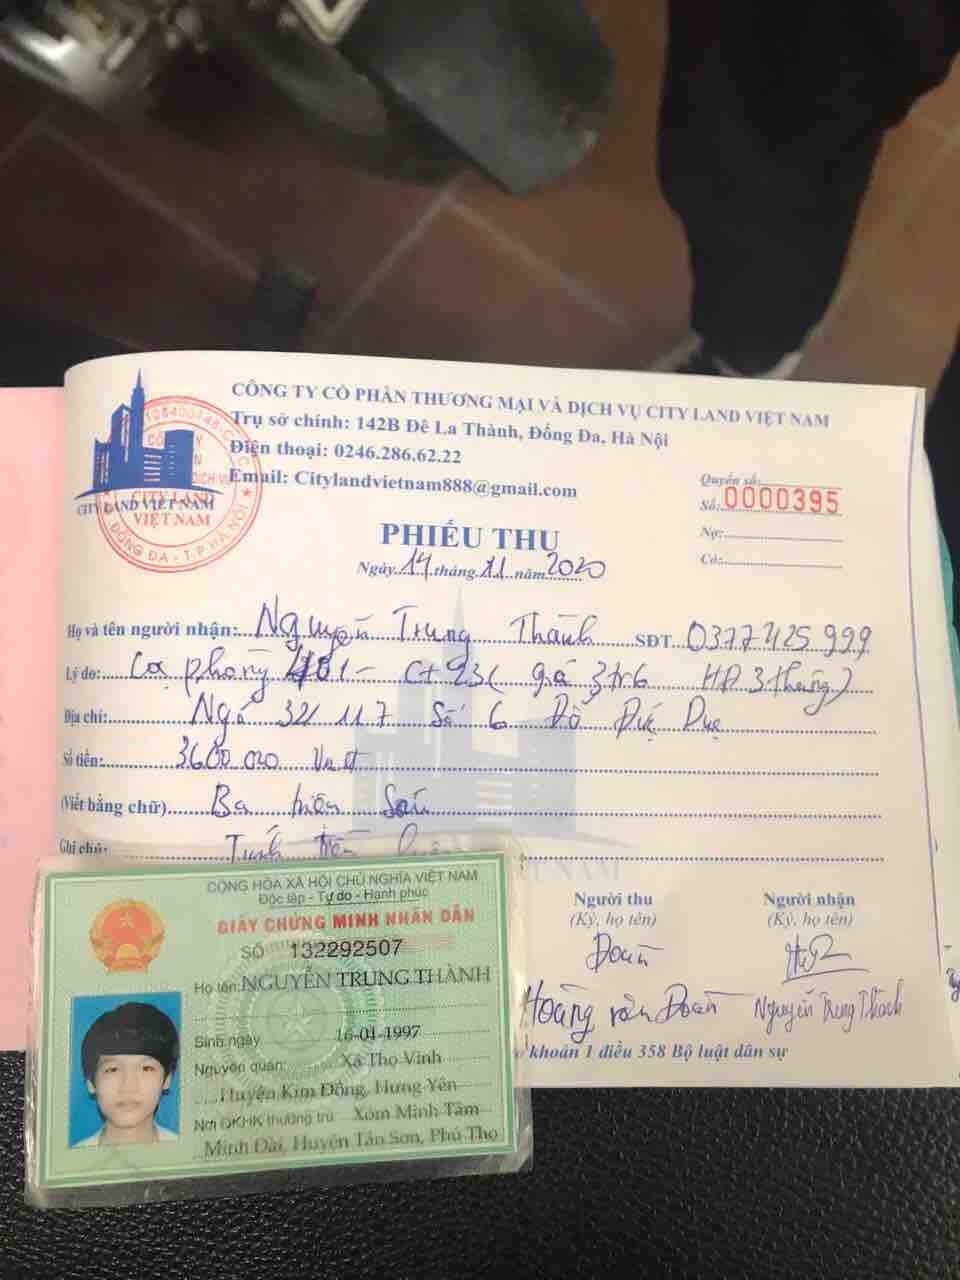 CÔNG TY CỔ PHẦN THƯƠNG MẠI VÀ DỊCH VỤ CITY LAND VIỆT NAM
Trụ sở chính: 142B Đê La Thành, Đống Đa, Hà Nội
Điện thoại: 0246.286.62.22
Email: Citylandvietnam888@gmail.com
CITY LAND VIỆT NAM
CITY LAND
VIỆT NAM
ĐỐNG ĐA - T.P HÀ NỘI
Quyển số:
Số: 0000395
Nợ:
Có:
PHIẾU THU
Ngày 14 tháng 11 năm 2020
Họ và tên người nhận: Nguyễn Trung Thành SĐT 0377425999
Lý do: Cọ phòng 401 - CT 23 ( giá 3tr6 HĐ 3 tháng)
Địa chỉ: Ngõ 32/117 Số 6 Đỗ Đức Dục
Số tiền: 3600 000 Vnđ
(Viết bằng chữ) Ba triệu Sáu
Ghi chú: Tính tiền
VIỆT NAM
Người thu
(Ký, họ tên)
Đoàn
Hoàng văn Đoàn
Người nhận
(Ký, họ tên)
Nguyễn Trung Thành
khoản 1 điều 358 Bộ luật dân sự
CỘNG HÒA XÃ HỘI CHỦ NGHĨA VIỆT NAM
Độc lập - Tự do - Hạnh phúc
GIẤY CHỨNG MINH NHÂN DÂN
SỐ 132292507
Họ tên: NGUYỄN TRUNG THÀNH
Sinh ngày 16-01-1997
Nguyên quán: Xã Thọ Vinh
Huyện Kim Động, Hưng Yên
Nơi ĐKHK thường trú Xóm Minh Tâm
Minh Đài, Huyện Tân Sơn, Phú Thọ